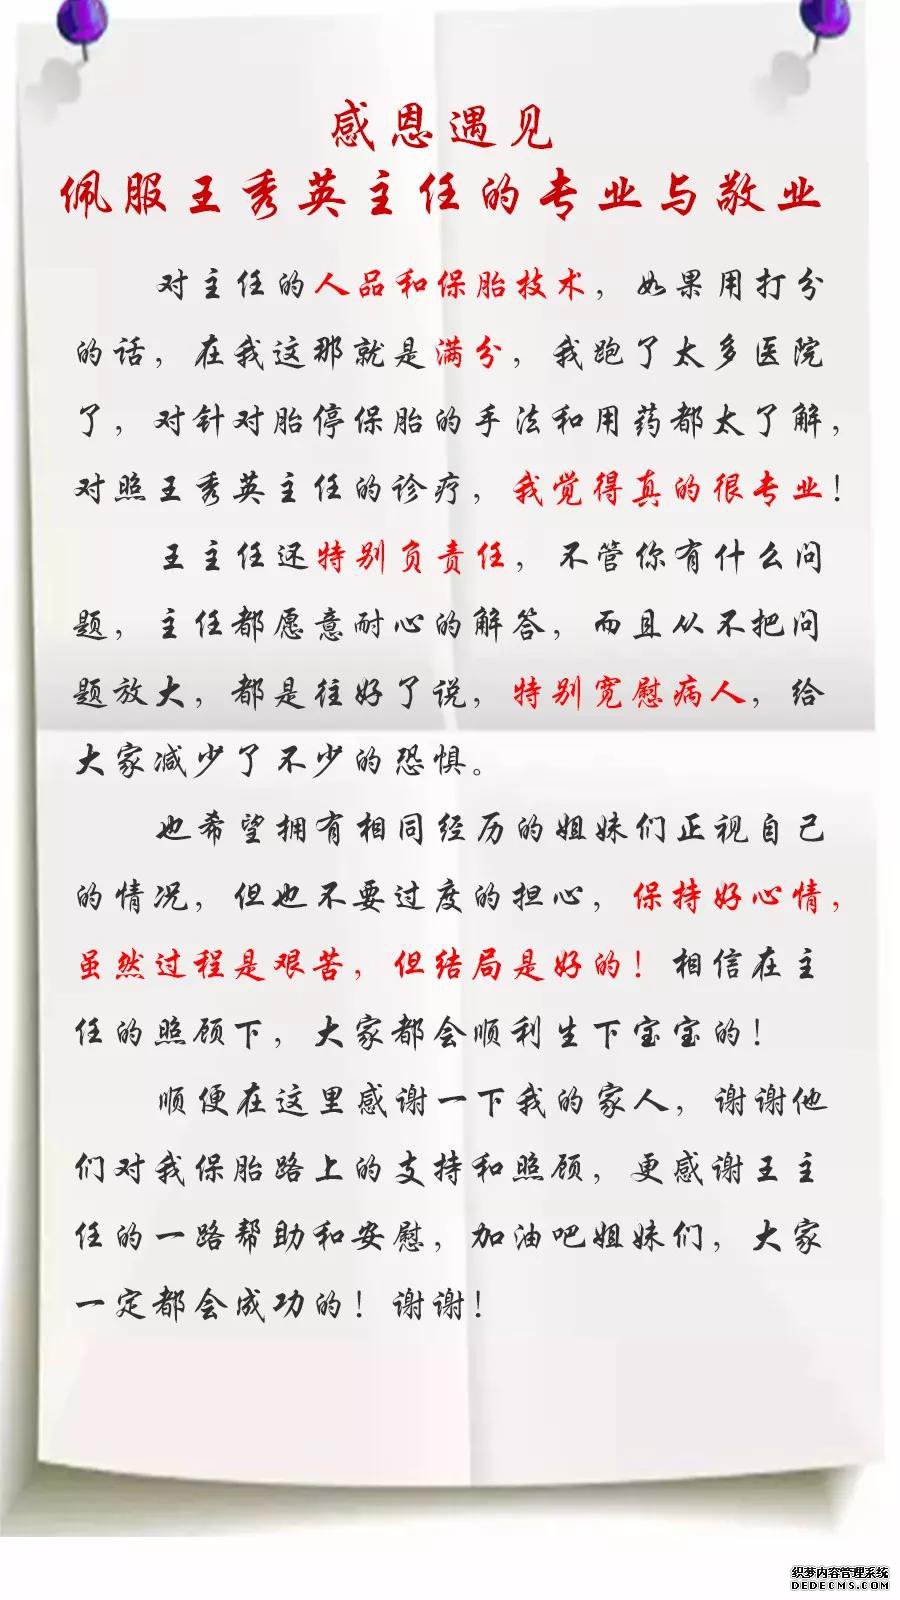 感恩遇见
佩服王秀英主任的专业与敬业
对主任的人品和保胎技术，如果用打分
的话，在我这那就是满分，我跑了太多医院
了，对针对胎停保胎的手法和用药都太了解，
对照王秀英主任的诊疗，我觉得真的很专业！
王主任还特别负责任，不管你有什么问
题，主任都愿意耐心的解答，而且从不把问
题放大，都是往好了说，特别宽慰病人，给
大家减少了不少的恐惧。
也希望拥有相同经历的姐妹们正视自己
的情况，但也不要过度的担心，保持好心情，
虽然过程是艰苦，但结局是好的！相信在主
任的照顾下，大家都会顺利生下宝宝的！
顺便在这里感谢一下我的家人，谢谢他
们对我保胎路上的支持和照顾，更感谢王主
任的一路帮助和安慰，加油吧姐妹们，大家
一定都会成功的！谢谢！
织梦内容管理系统
DEDECMS.COM